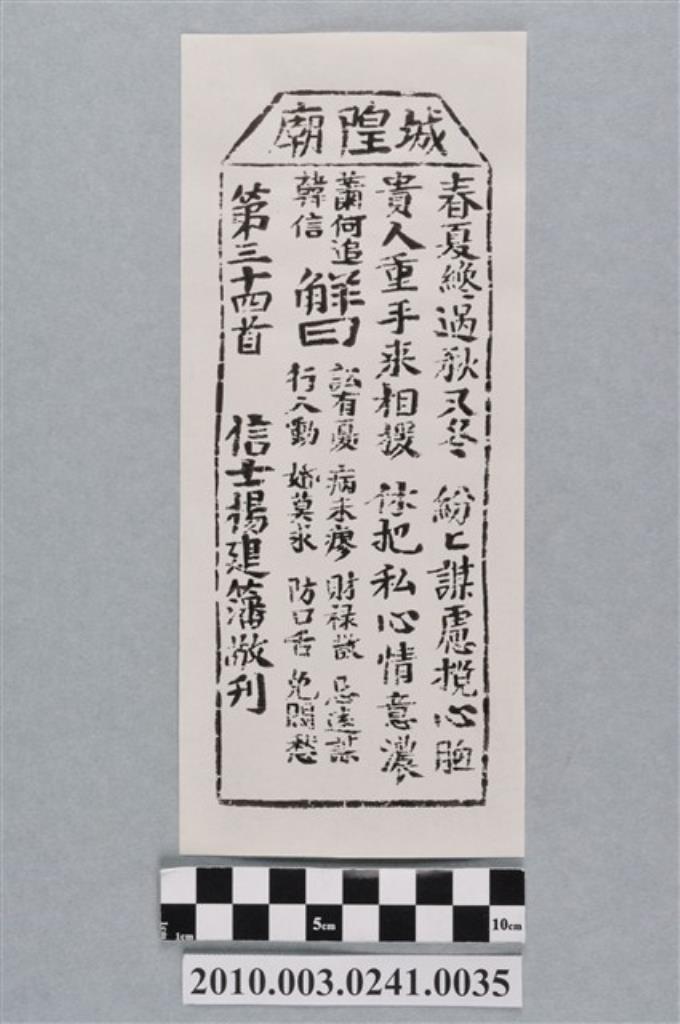 城隍廟
春夏纔過秋又冬 紛〻謀慮攪心胸
貴人重手來相援 休把私心情意濃
蕭何追
韓信
解曰
訟有憂 病未瘳 財祿散 忌遠謀
行人動 婚莫求 防口舌 免悶愁
第三十四首 信士楊建籓敬刊
5cm
10cm
1cm
2010.003.0241.0035